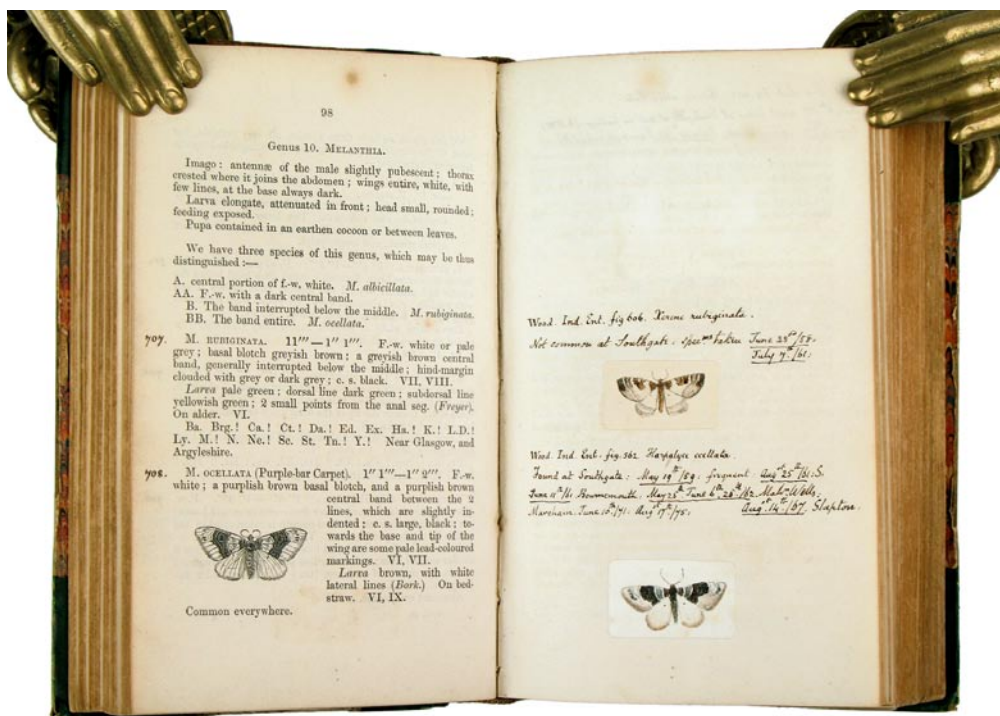 98
Genus 10. MELANTHIA.
Imago: antennæ of the male slightly pubescent; thorax
crested where it joins the abdomen; wings entire, white, with
few lines, at the base always dark.
Larva elongate, attenuated in front; head small, rounded;
feeding exposed.
Pupa contained in an earthen cocoon or between leaves.
We have three species of this genus, which may be thus
distinguished:—
A. central portion of f.-w. white. M. albicillata.
AA. F.-w. with a dark central band.
B. The band interrupted below the middle. M. rubiginata.
BB. The band entire. M. ocellata.
707. M. RUBIGINATA. 11'''—1" 1'''. F.-w. white or pale
grey; basal blotch greyish brown; a greyish brown central
band, generally interrupted below the middle; hind-margin
clouded with grey or dark grey; c. s. black. VII, VIII.
Larva pale green; dorsal line dark green; subdorsal line
yellowish green; 2 small points from the anal seg. (Freyer).
On alder. VI.
Ba. Brg.! Ca.! Ct.! Da.! Ed. Ex. Ha.! K.! L.D.!
Ly. M.! N. Ne.! Sc. St. Tn.! Y.! Near Glasgow, and
Argyleshire.
708. M. OCELLATA (Purple-bar Carpet). 1" 1'''—1" 2'''. F.-w.
white; a purplish brown basal blotch, and a purplish brown
central band between the 2
lines, which are slightly in-
dented; c. s. large, black; to-
wards the base and tip of the
wing are some pale lead-coloured
markings. VI, VII.
Larva brown, with white
lateral lines (Bork.) On bed-
straw. VI, IX.
Common everywhere.
Wood. Ind. Ent. fig 606. Xerene rubiginata.
Not common at Southgate. specms taken June 28th/58.
July 7th/61.
Wood. Ind. Ent. fig. 562. Harpalyce ocellata.
Found at Southgate: May 19th/59. frequent. Aug 25th/61. S.
June 11th/61 Bournemouth. May 25th June 6th. 26th/62. Wells.
Mareham. June 10th/71. Aug 17th/75. Aug. 14th/67. Slapton.